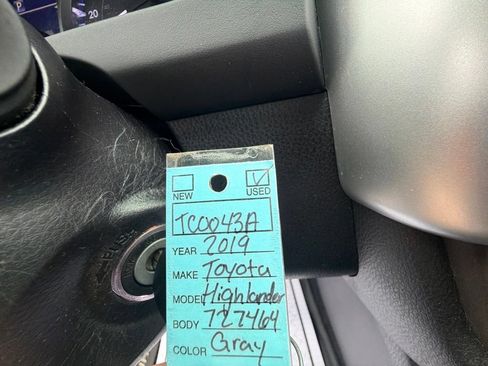 P
20
NEW
USED
TC0043A
YEAR 2019
MAKE Toyota
MODEL Highlander
BODY 727464
COLOR Gray
PUSH